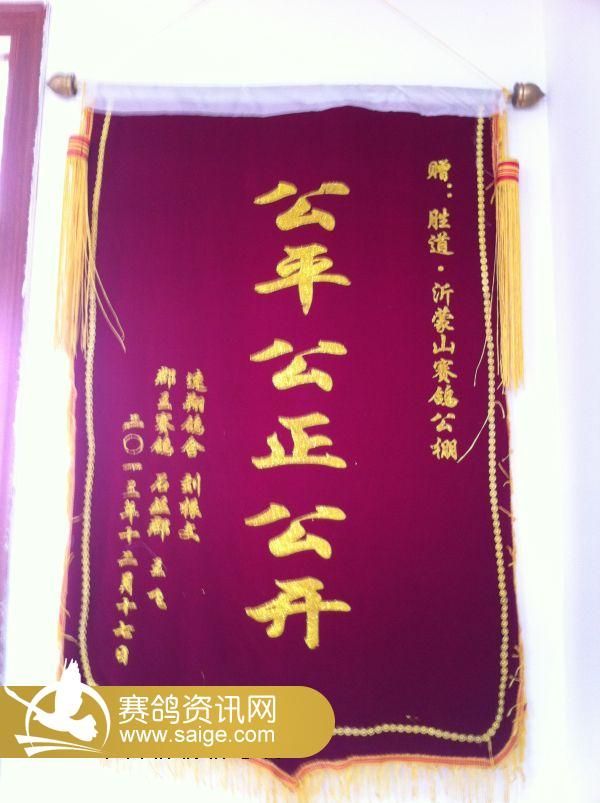 赠：胜道·沂蒙山赛鸽公棚
公平公正公开
速翔鸽舍 刘振文
郡王赛鸽 石延郡 王飞
二〇一三年十二月十七日
赛鸽资讯网
www.saige.com